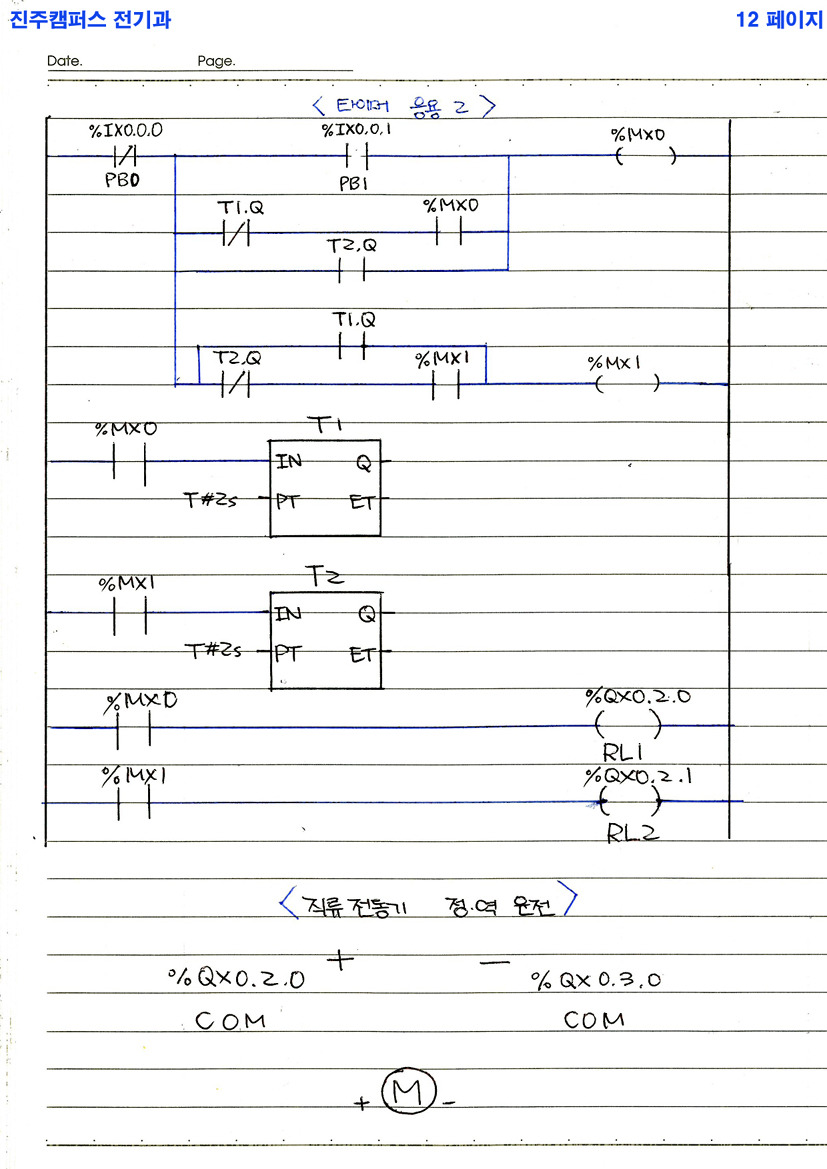 진주캠퍼스 전기과 12 페이지
Date. Page.
< 타이머 응용 2 >
%IX0.0.0 %IX0.0.1 %MX0
PB0 PB1
T1.Q %MX0
T2.Q
T1.Q
T2.Q %MX1 %MX1
%MX0 T1
IN Q
T#2s PT ET
%MX1 T2
IN Q
T#2s PT ET
%MX0 %QX0.2.0
RL1
%MX1 %QX0.2.1
RL2
< 직류 전동기 정.역 운전 >
+ -
%QX0.2.0 %QX0.3.0
COM COM
+ M -